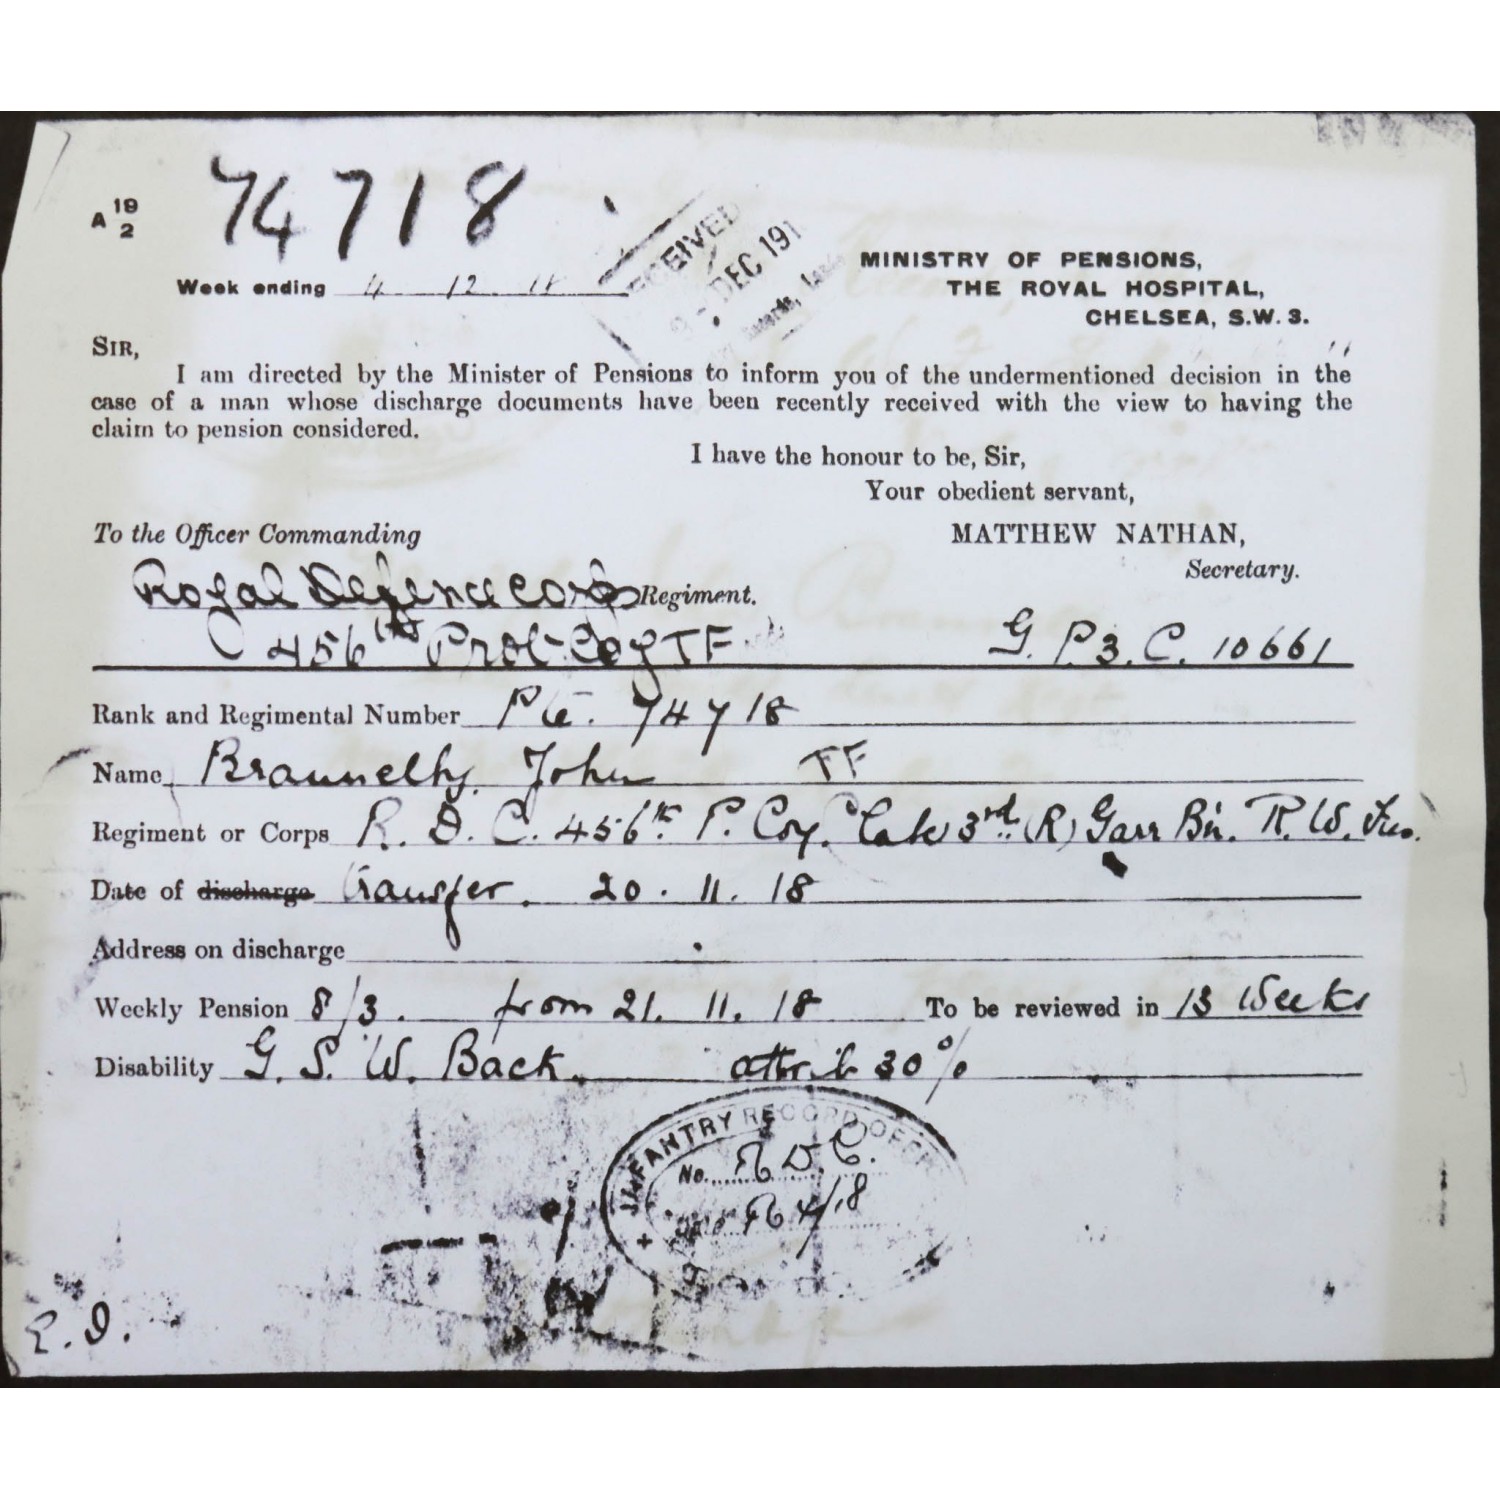 74718
A 19/2
RECEIVED
DEC 191
Week ending 4 12 18
MINISTRY OF PENSIONS,
THE ROYAL HOSPITAL,
CHELSEA, S.W. 3.
SIR,
I am directed by the Minister of Pensions to inform you of the undermentioned decision in the
case of a man whose discharge documents have been recently received with the view to having the
claim to pension considered.
I have the honour to be, Sir,
Your obedient servant,
To the Officer Commanding
MATTHEW NATHAN,
Secretary.
Royal Defence Corps Regiment.
456th Prot. Coy TF
G. P.3. C. 10661
Rank and Regimental Number Pte. 74718
Name Brannelly John TF
Regiment or Corps R. D. C. 456th P. Coy. late 3rd (R) Garr Bn. R. W. Fus.
Date of discharge transfer. 20. 11. 18
Address on discharge
Weekly Pension 8/3. from 21. 11. 18 To be reviewed in 13 Weeks
Disability G. S. W. Back. attrib 30%
INFANTRY RECORD OFFICE
No. R D C.
R 4/18
E. D.